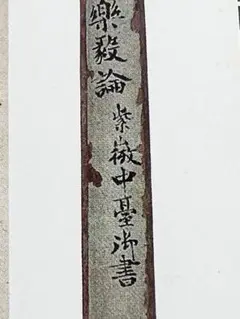 樂毅論
紫微中臺御書